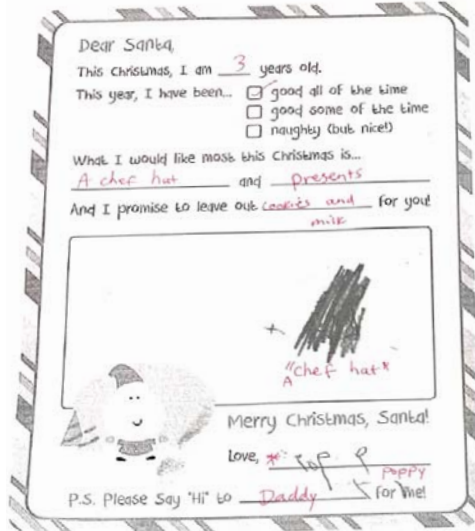 Dear Santa,
This Christmas, I am 3 years old.
This year, I have been... good all of the time
good some of the time
naughty (but nice!)
What I would like most this Christmas is...
A chef hat and presents
And I promise to leave out cookies and for you!
milk
"A chef hat"
Merry Christmas, Santa!
Love,
Poppy
P.S. Please Say "Hi" to Daddy for me!